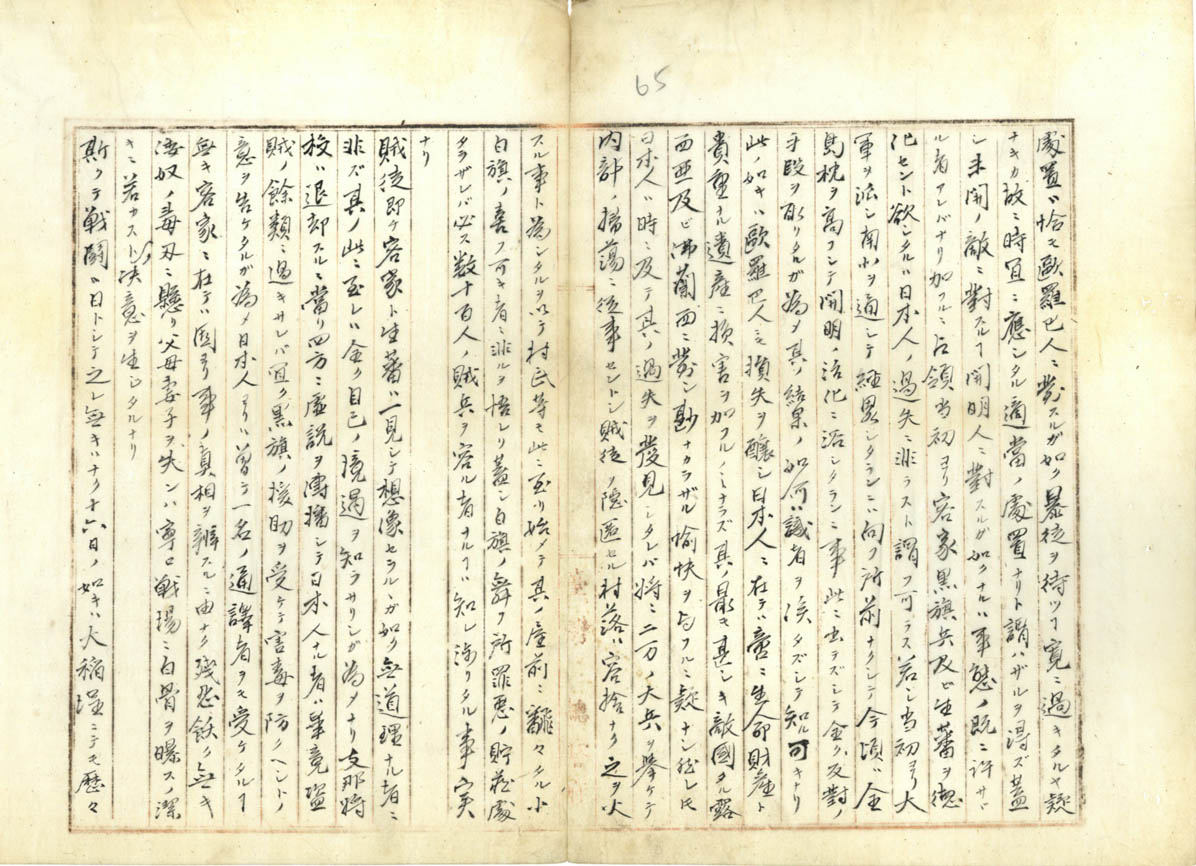 65
處置ハ恰モ歐羅巴人ニ對スルガ如ク暴徒ヲ待ツヿ寛ニ過キタルヤ疑
ナキカ故ニ時宜ニ應シタル適當ノ處置ナリト謂ハザルヲ得ズ蓋
シ未開ノ敵ニ對スルヿ開明人ニ對スルガ如クナルハ事態ノ既ニ許サヾ
ル者アレバナリ加フルニ占領当初ヨリ客家黒旗兵及ビ生蕃ヲ
化セント欲シタルハ日本人ノ過失ニ非ラスト謂フ可ラス若シ当初ヨリ大
軍ヲ派シ南北ヲ通シテ經畧シタランニハ向フ所前ナクシテ今頃ハ全
島枕ヲ高フシテ開明ノ活化ニ浴シタランニ事此ニ出デズシテ全ク反對ノ
手段ヲ取リタルガ為メ其ノ結果ノ如何ハ識者ヲ俟タズシテ知ル可キナリ
此ノ如キハ歐羅巴人ニモ損失ヲ醸シ日本人ニ在テハ啻ニ生命財産ト
貴重ナル遺産ニ損害ヲ加フルノミナラズ其最モ甚シキ敵國タル露
西亜及ビ沸蘭西ニ對シ尠ナカラザル愉快ヲ与フルニ疑ナシ然レ𪜈
日本人ハ時ニ及テ其ノ過失ヲ發見シタレバ将ニ二万ノ大兵ヲ擧ケテ
内計ノ掃蕩ニ從事セントシ賊徒ノ隠匿セル村落ハ容捨ナク之ヲ火
スル事ト為シタルヲ以テ村民等モ此ニ至リ始メテ其ノ屋前ニ飜々タル小
白旗ノ喜フ可キ者ニ非ルヲ悟レリ蓋シ白旗ノ舞フ所罪悪ノ貯蔵處
タラザレバ必ス数十百人ノ賊兵ヲ容ル者ナルヿハ知レ渉リタル事実
ナリ
賊徒即チ客家ト生蕃ハ一見シテ想像セラルヽガ如ク無道理ナル者ニ
非ズ其ノ此ニ至レルハ全ク自己ノ境遇ヲ知ラサリシガ為メナリ支那将
校ハ退却スルニ當リ四方ニ虚説ヲ傳播シテ日本人ナル者ハ畢竟盗
賊ノ餘類ニ過キサレバ宜ク黒旗ノ援助ヲ受ケテ害毒ヲ防クヘシトノ
意ヲ告ケタルガ為メ日本人ヨリハ曽テ一名ノ通譯者ヲモ受ケタルヿ
無キ客家ニ在テハ固ヨリ事ノ真相ヲ辨スルニ由ナク残忍飫ク無キ
倭奴ノ毒刃ニ懸リ父母妻子ヲ失ハンハ寧ロ戦場ニ白骨ヲ曝スノ潔
キニ若カストノ决意ヲ生シタルナリ
斯クテ戦鬪ハ日トシテ之レ無キハナク十六日ノ如キハ大稲埕ニテモ歴々